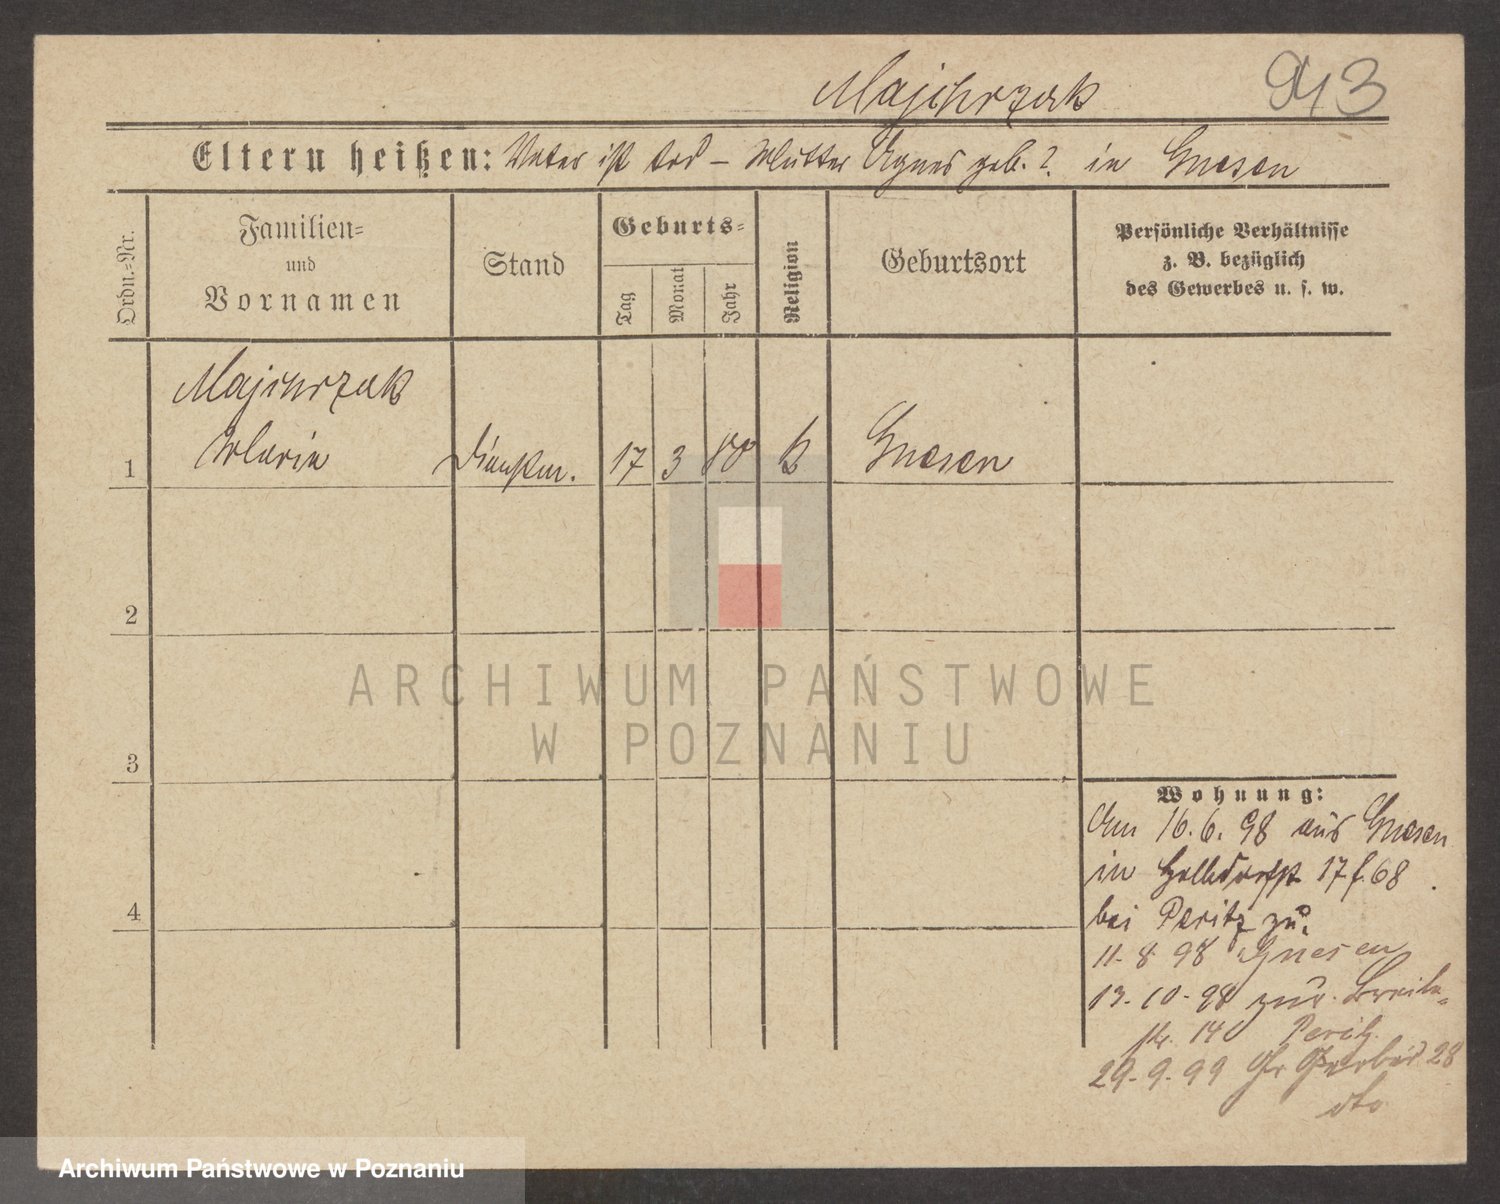 943
Majchrzak
Eltern heißen: Vater ist tod – Mutter Agnes geb. ? in Gnesen
Ordn.=Nr.
Familien=
und
Vornamen
Stand
Geburts=
Tag
Monat
Jahr
Religion
Geburtsort
Persönliche Verhältnisse
z. B. bezüglich
des Gewerbes u. s. w.
Majchrzak
1 Maria Dienstm. 17 3 80 k Gnesen
2
3
4
Wohnung:
Am 16.6.98 aus Gnesen
in Halbdorfstr 17 f. 68
bei Peritz zu.
11-8 98 Gnesen
13-10-98 zur. Breite=
str. 14 Peritz
29-9-99 Gr Gerber 28
dto
ARCHIWUM PAŃSTWOWE
W POZNANIU
Archiwum Państwowe w Poznaniu